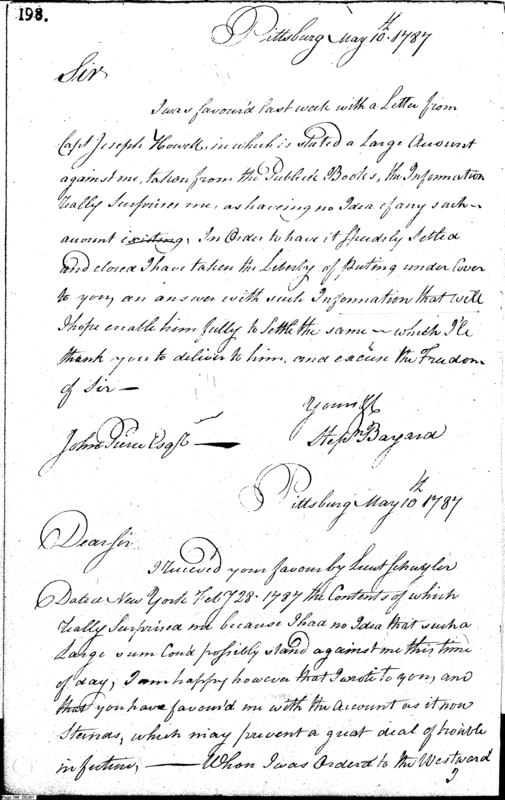 198.
Pittsburg May 10th. 1787
Sir
I was favour'd last week with a Letter from
Capt Joseph Howell, in which is stated a Large Account
against me, taken from the Publick Books, the Information
really Surprises me, as haveing no Idea of any such
account existing, In Order to have it Speedily Settled
and closed I have taken the Liberty of puting under Cover
to you, an answer with such Information that will
I hope enable him fully to Settle the same — which I'll
thank you to deliver to him, and excuse the Freedom
of Sir —
Yours &c
John Pierce Esqr —
Stepn Bayard
Pittsburg May 10th 1787
Dear Sir
I received your favour by Lieut Schuyler
Dated New York Feby 28. 1787 the Contents of which
really Surprised me because I had no Idea that such a
Large sum Coud possibly stand against me this time
of day, I am happy however that I wrote to you, and
that you have favour'd me with the Account as it now
Stands, which may prevent a great deal of trouble
in future, — When I was Order'd to the Westward